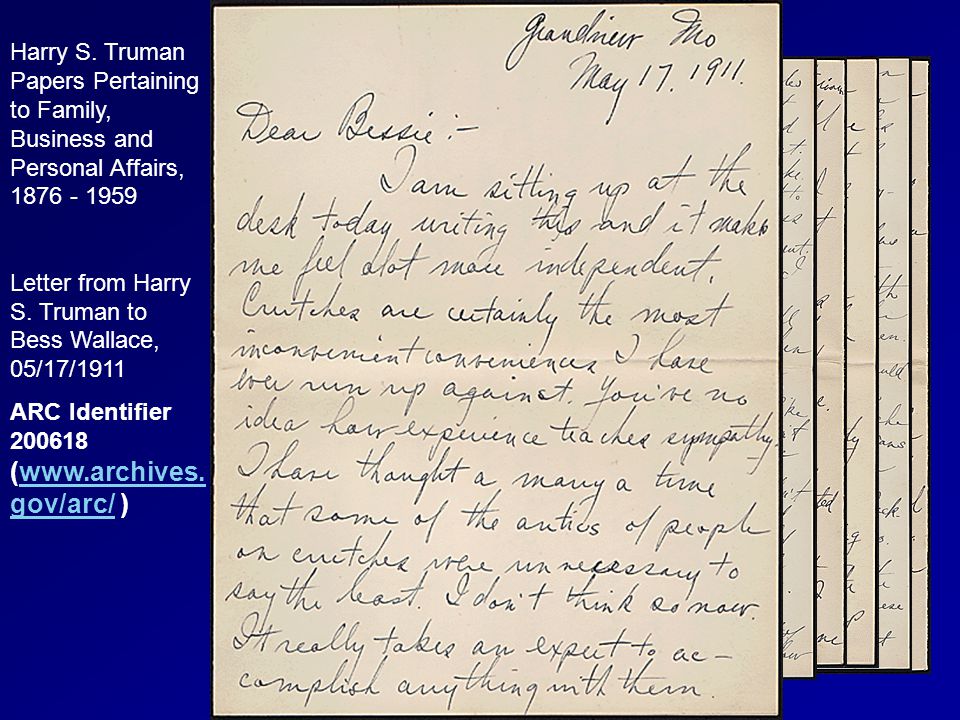 Harry S. Truman
Papers Pertaining
to Family,
Business and
Personal Affairs,
1876 - 1959
Letter from Harry
S. Truman to
Bess Wallace,
05/17/1911
ARC Identifier
200618
(www.archives.
gov/arc/ )
Grandview Mo
May 17, 1911.
Dear Bessie:-
I am sitting up at the
desk today writing this and it makes
me feel alot more independent.
Crutches are certainly the most
inconvenient conveniences I have
ever run up against. You've no
idea how experience teaches sympathy.
I have thought a many a time
that some of the antics of people
on crutches were unnecessary to
say the least. I don't think so now.
It really takes an expert to ac-
complish anything with them.